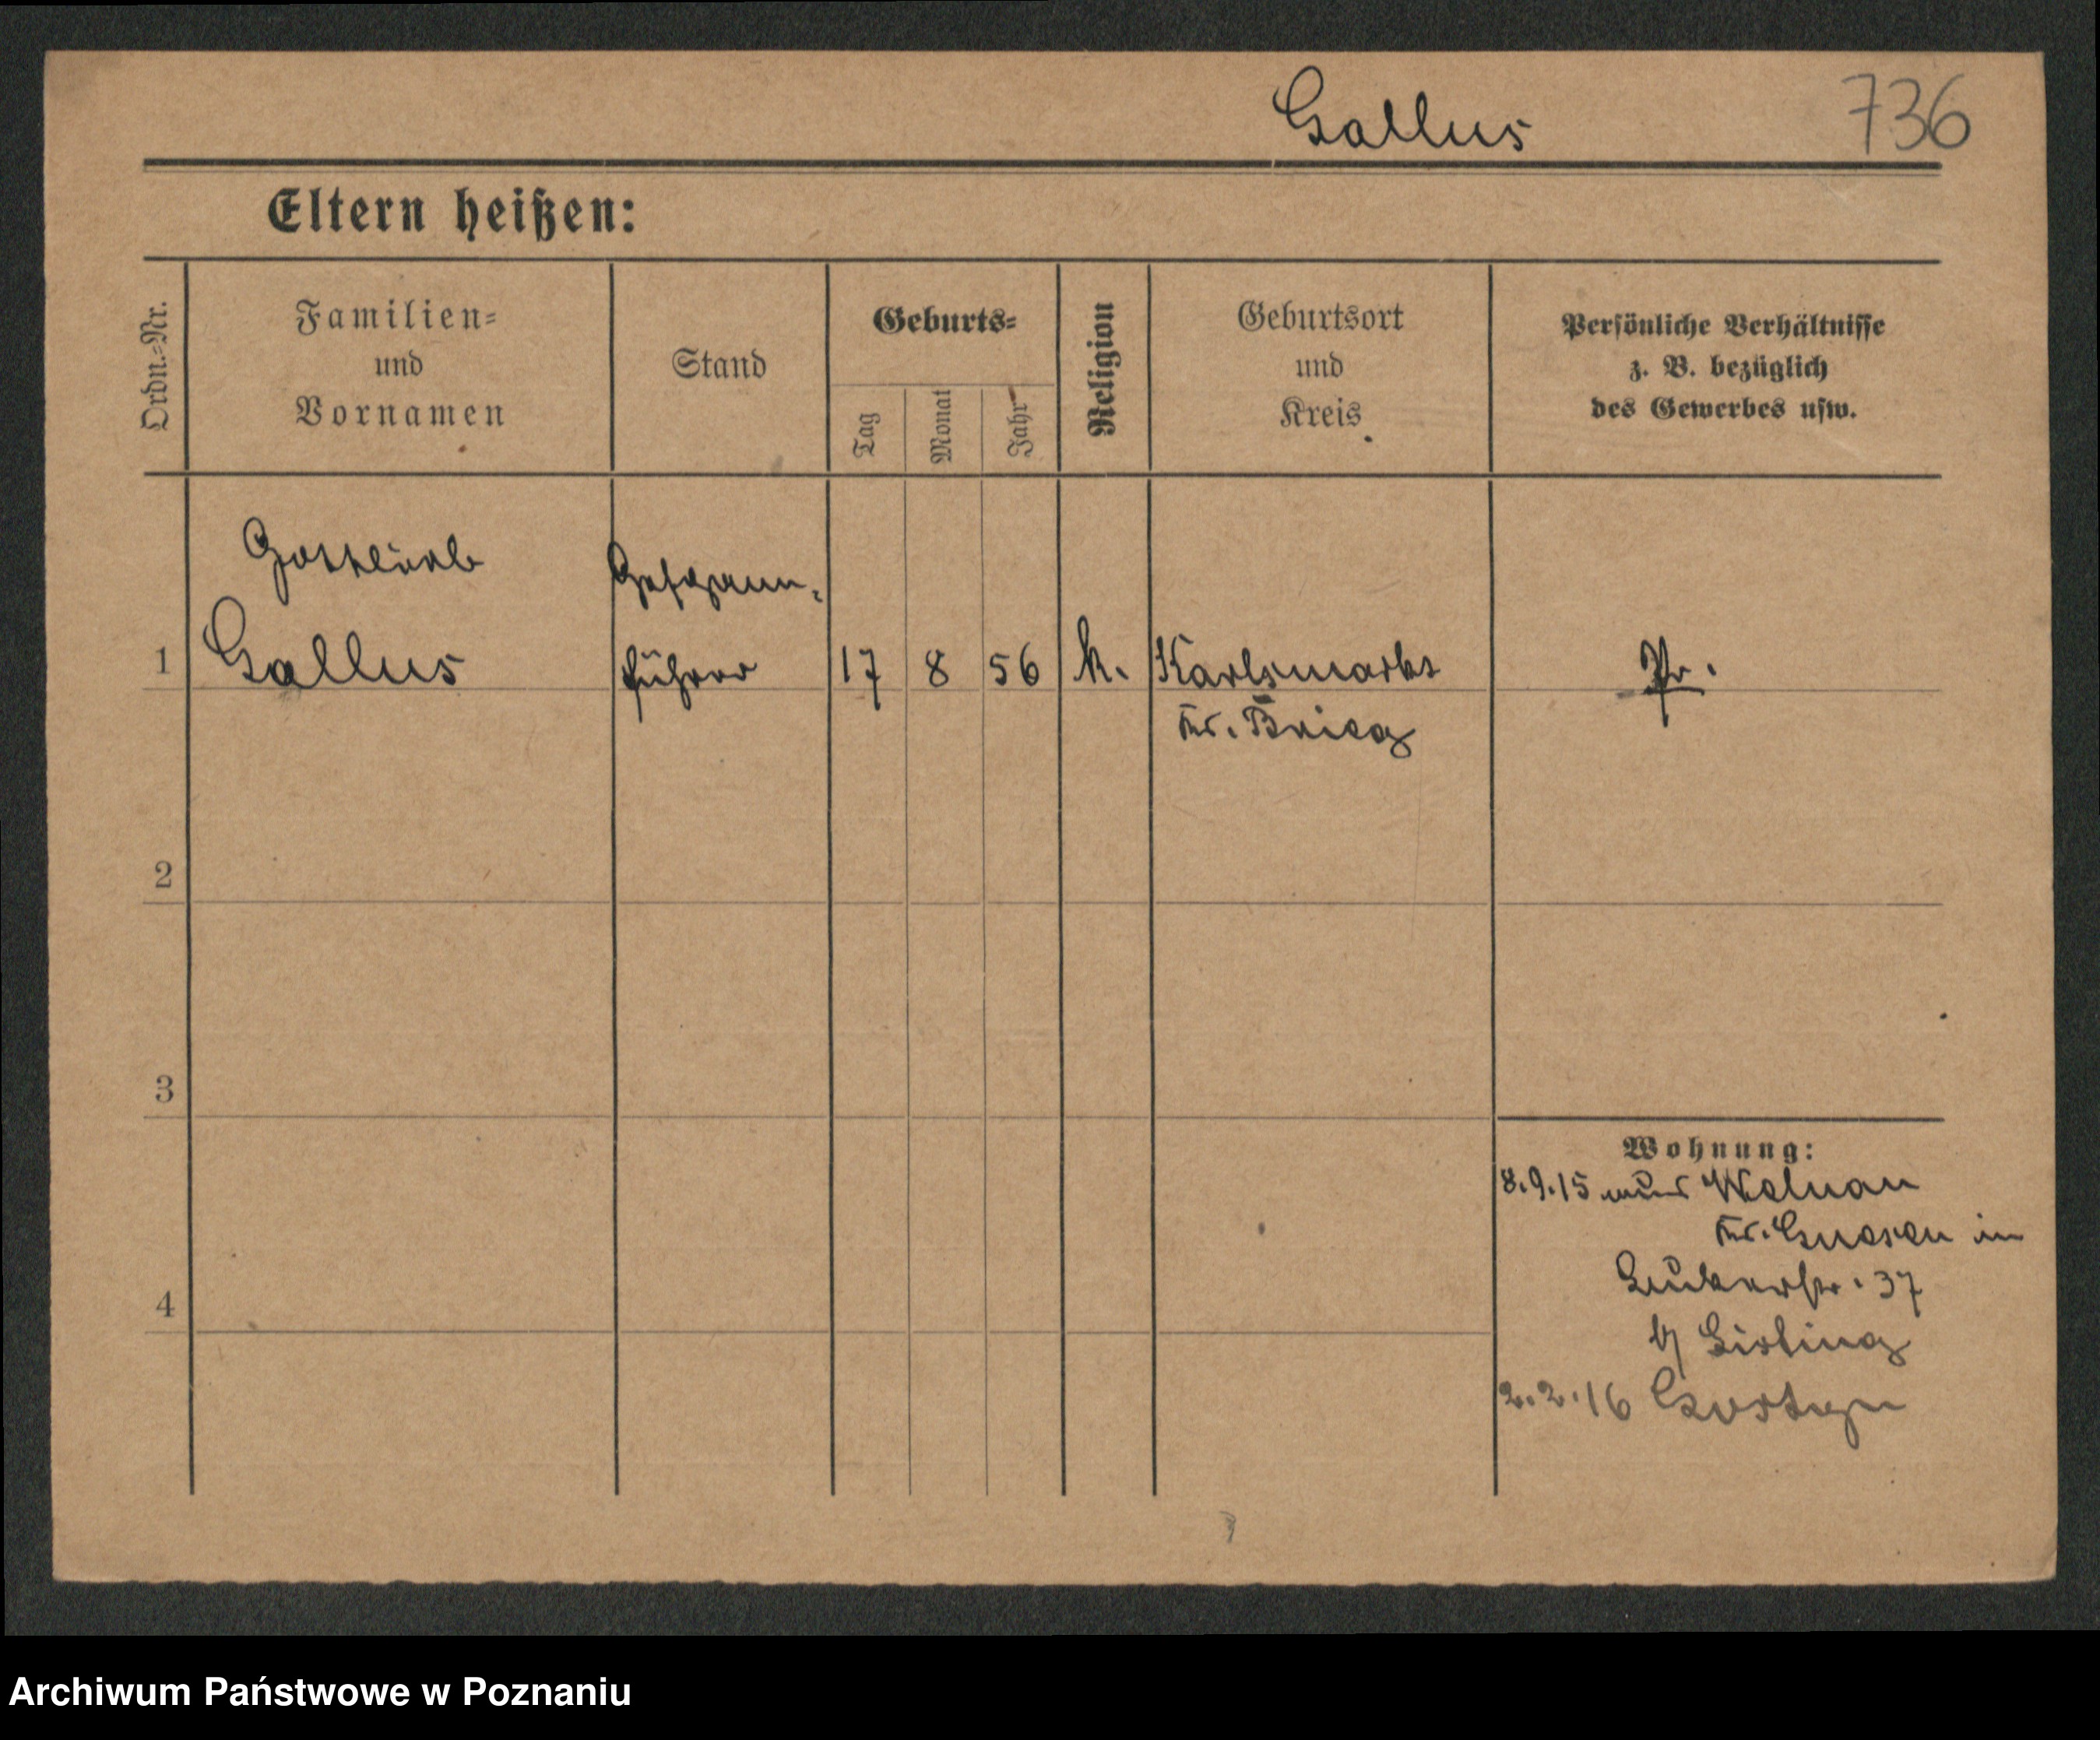 Gallus 736
Eltern heißen:
Ordn.-Nr.
Familien-
und
Vornamen
Stand
Geburts-
Tag
Monat
Jahr
Religion
Geburtsort
und
Kreis
Persönliche Verhältnisse
z. B. bezüglich
des Gewerbes usw.
Gottlieb
Gallus
Gespann-
führer
1
17 8 56 k.
Karlsmarkt
Kr. Brieg
Pr.
2
3
4
Wohnung:
8.9.15
Kr. Gnesen in
37
b/
2.2.16 Gortzyn
Archiwum Państwowe w Poznaniu